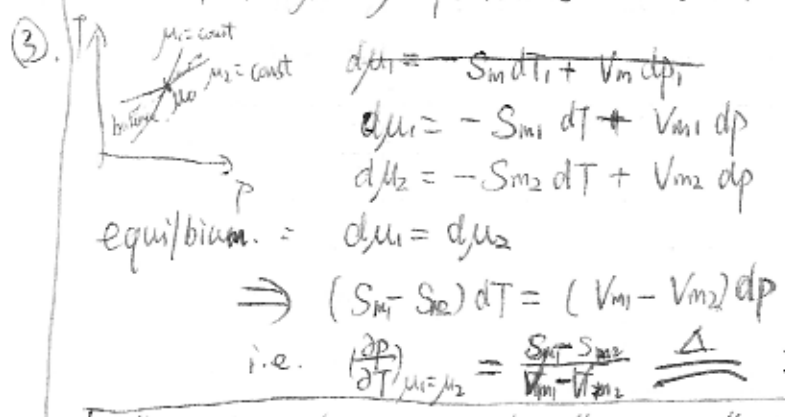 ③.
T
μ₁ = const
μ₂ = const
μ₀
P
dμ₁ = - Sm dT₁ + Vm dp₁
dμ₁ = - Sm₁ dT + Vm₁ dp
dμ₂ = - Sm₂ dT + Vm₂ dp
equilbium. : dμ₁ = dμ₂
⇒ (Sm₁ - Sm₂) dT = (Vm₁ - Vm₂) dp
i.e. (∂p/∂T)μ₁=μ₂ = (Sm₁ - Sm₂)/(Vm₁ - Vm₂) Δ